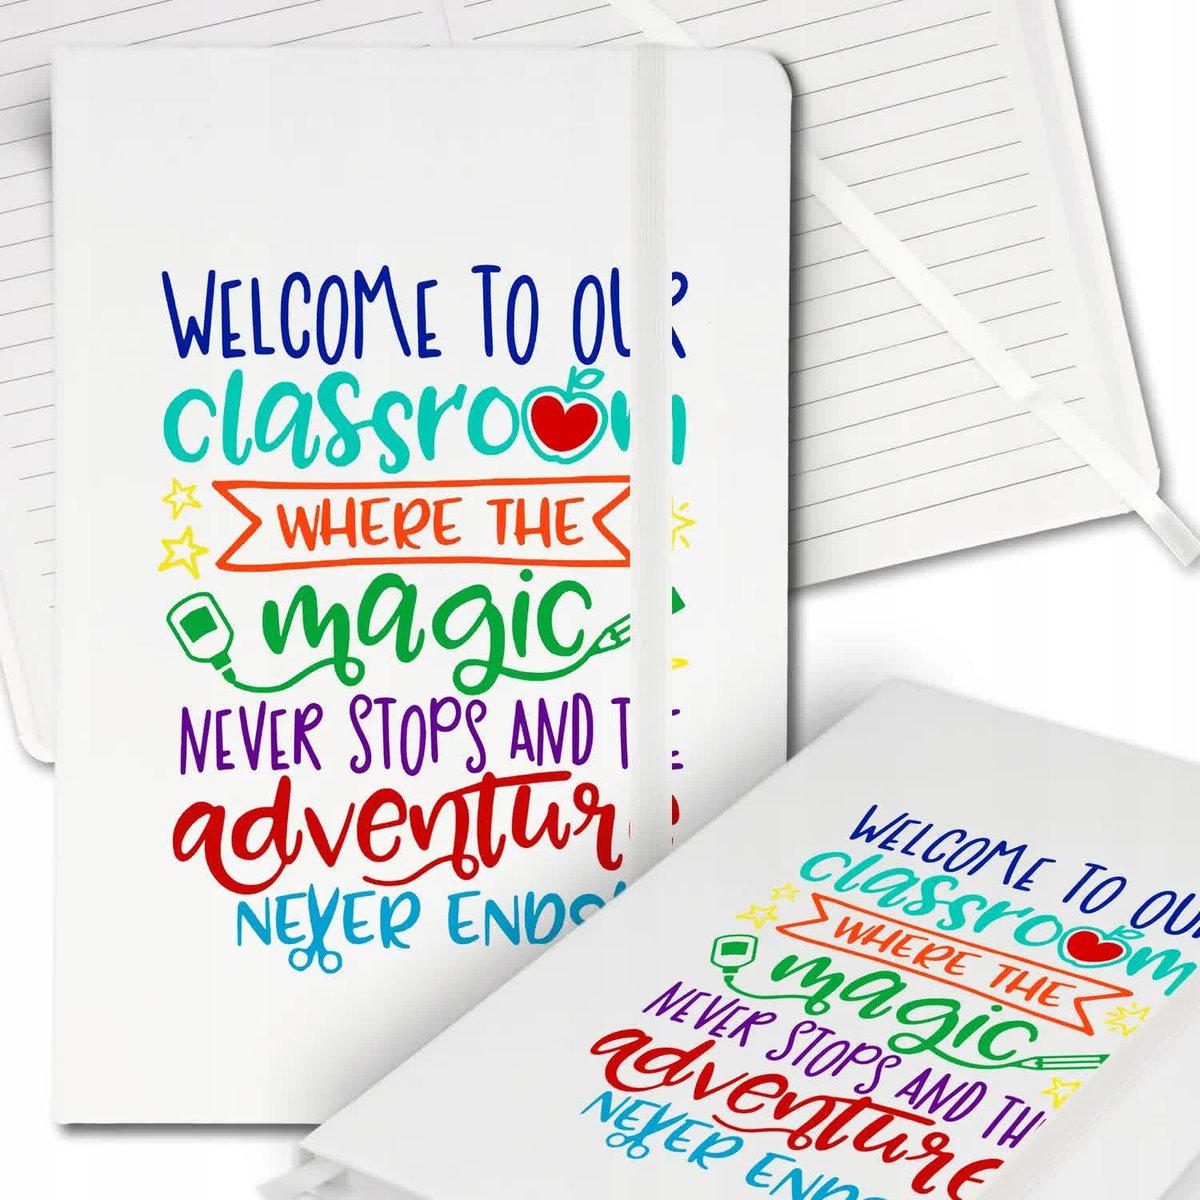 WELCOME TO OUR
classroom
WHERE THE
magic
NEVER STOPS AND THE
adventure
NEVER ENDS
WELCOME TO OUR
classroom
WHERE THE
magic
NEVER STOPS AND TH
adventure
NEVER ENDS